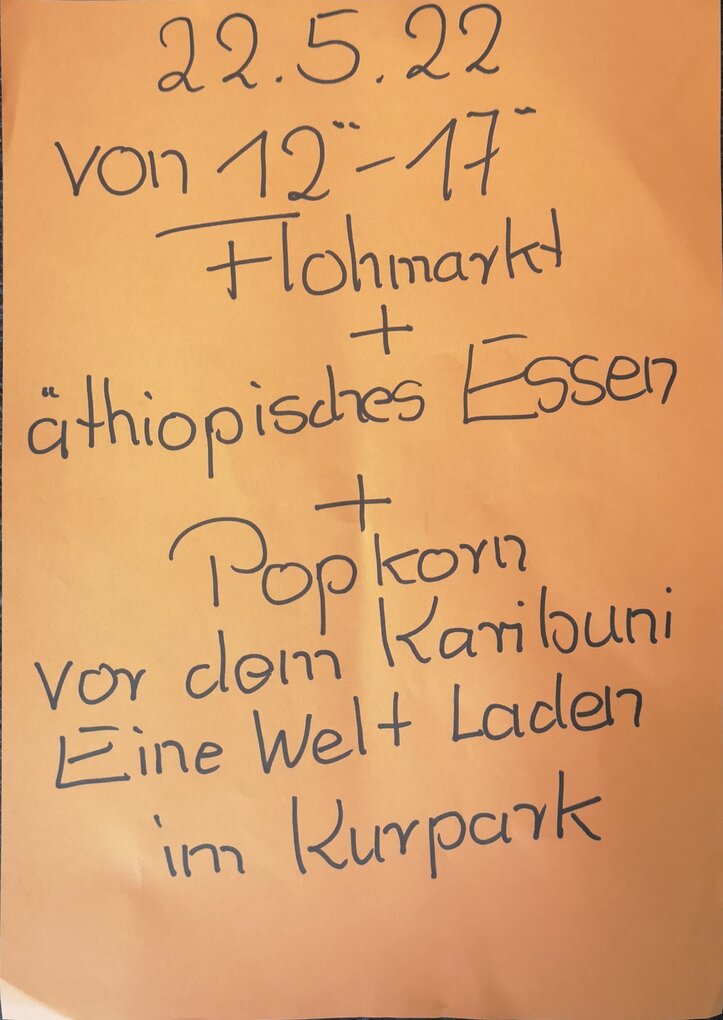 22.5.22
von 12°°-17°°
Flohmarkt
+
äthiopisches Essen
+
Popkorn
vor dem Karibuni
Eine Welt Laden
im Kurpark